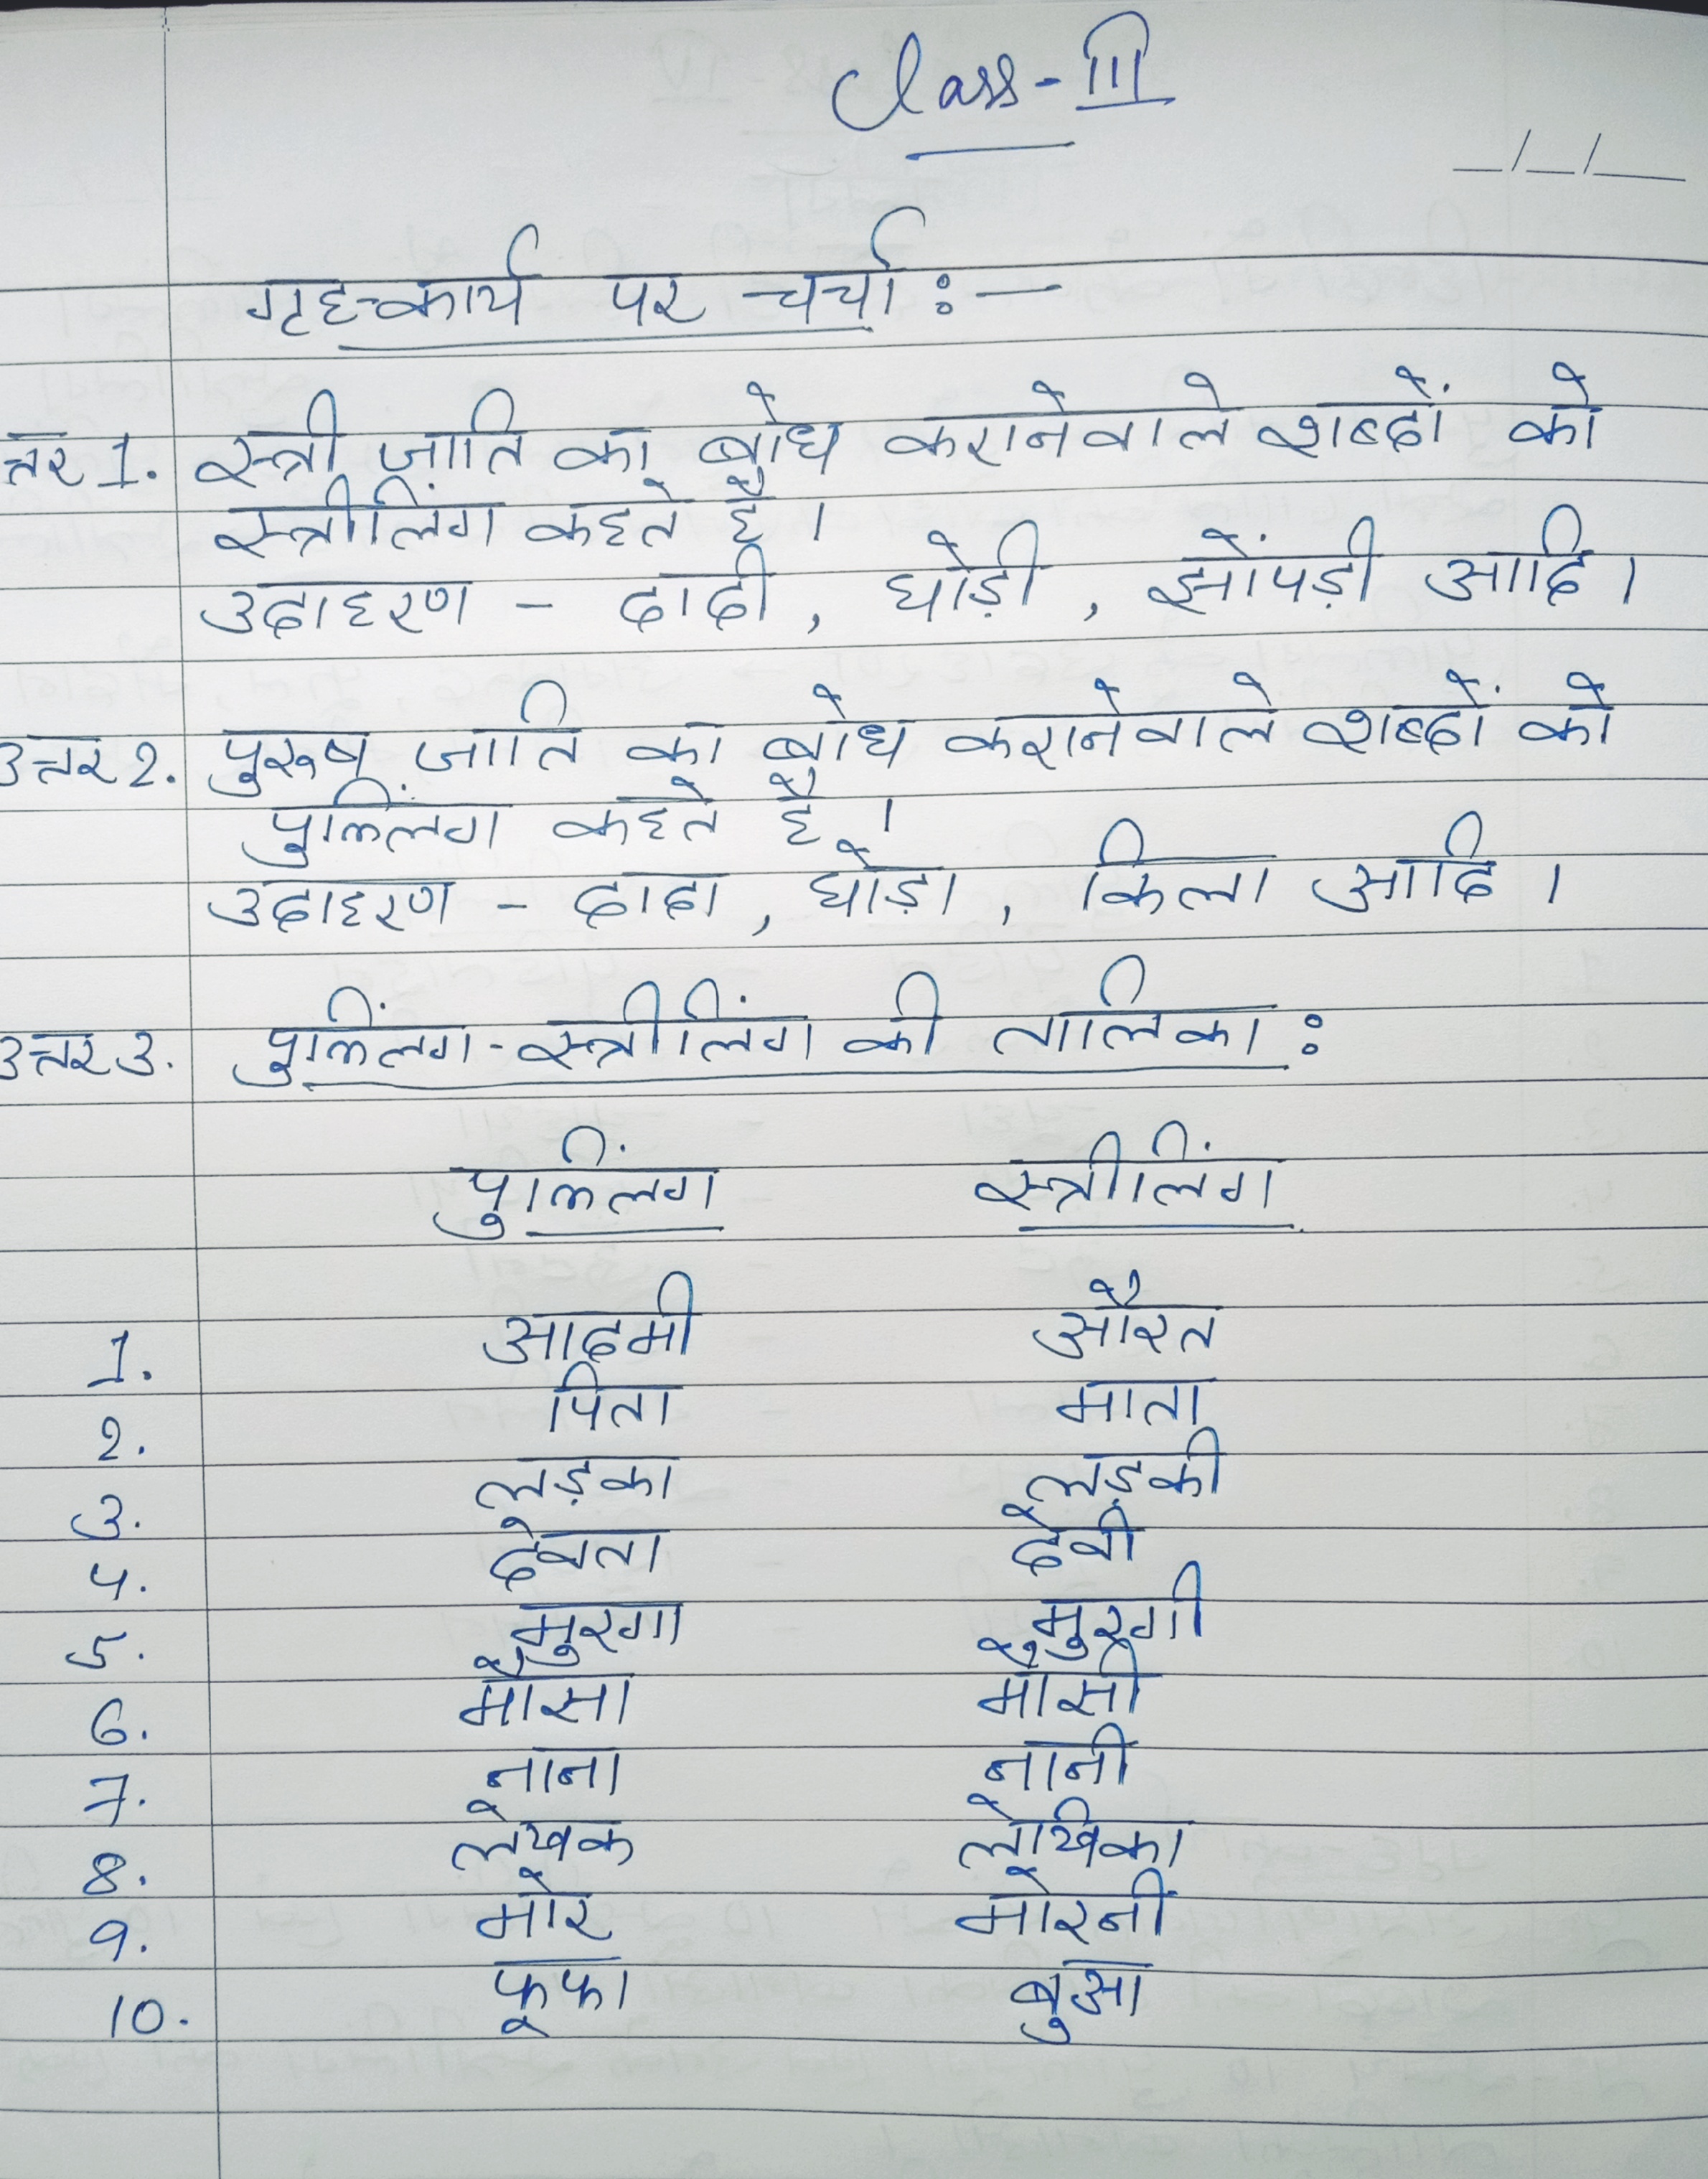 Class - III
__/__/__
गृह-कार्य पर चर्चा :-
त्तर 1. स्त्री जाति का बोध करानेवाले शब्दों को
स्त्रीलिंग कहते है ।
उदाहरण - दादी , घोड़ी , झोंपड़ी आदि ।
उत्तर 2. पुरुष जाति का बोध करानेवाले शब्दों को
पुल्लिंग कहते है ।
उदाहरण - दादा , घोड़ा , किला आदि ।
उत्तर 3. पुल्लिंग - स्त्रीलिंग की तालिका :
पुल्लिंग स्त्रीलिंग
1. आदमी औरत
2. पिता माता
3. लड़का लड़की
4. देवता देवी
5. मुरगा मुरगी
6. मौसा मौसी
7. नाना नानी
8. लेखक लेखिका
9. मोर मोरनी
10. फूफा बुआ